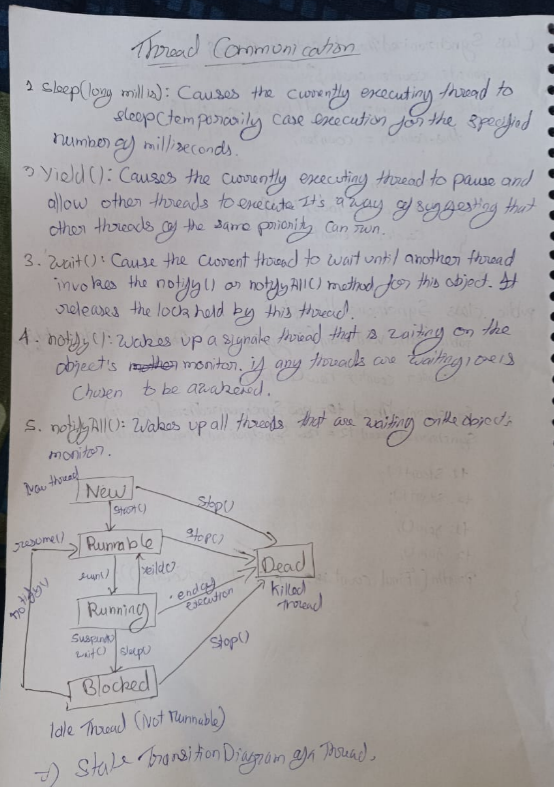 Thread Communication
1 sleep(long millis): Causes the currently executing thread to
sleep(temporarily case execution for the specified
number of milliseconds.
2) Yield(): Causes the currently executing thread to pause and
allow other threads to execute. It's a way of suggesting that
other threads of the same priority can run.
3. wait(): Cause the current thread to wait until another thread
invokes the notify() or notifyAll() method for this object. It
releases the lock held by this thread.
4. notify(): Wakes up a signale thread that is waiting on the
object's monitor. if any threads are waiting, one is
chosen to be awakened.
5. notifyAll(): Wakes up all threads that are waiting on the object's
monitor.
New thread
New
Stop()
start()
resume()
Runnable
stop()
Dead
run()
yield()
Killed
Thread
notify()
Running
end of
execution
suspend()
wait()
sleep()
Stop()
Blocked
Idle Thread (Not Runnable)
State Transition Diagram of a Thread.